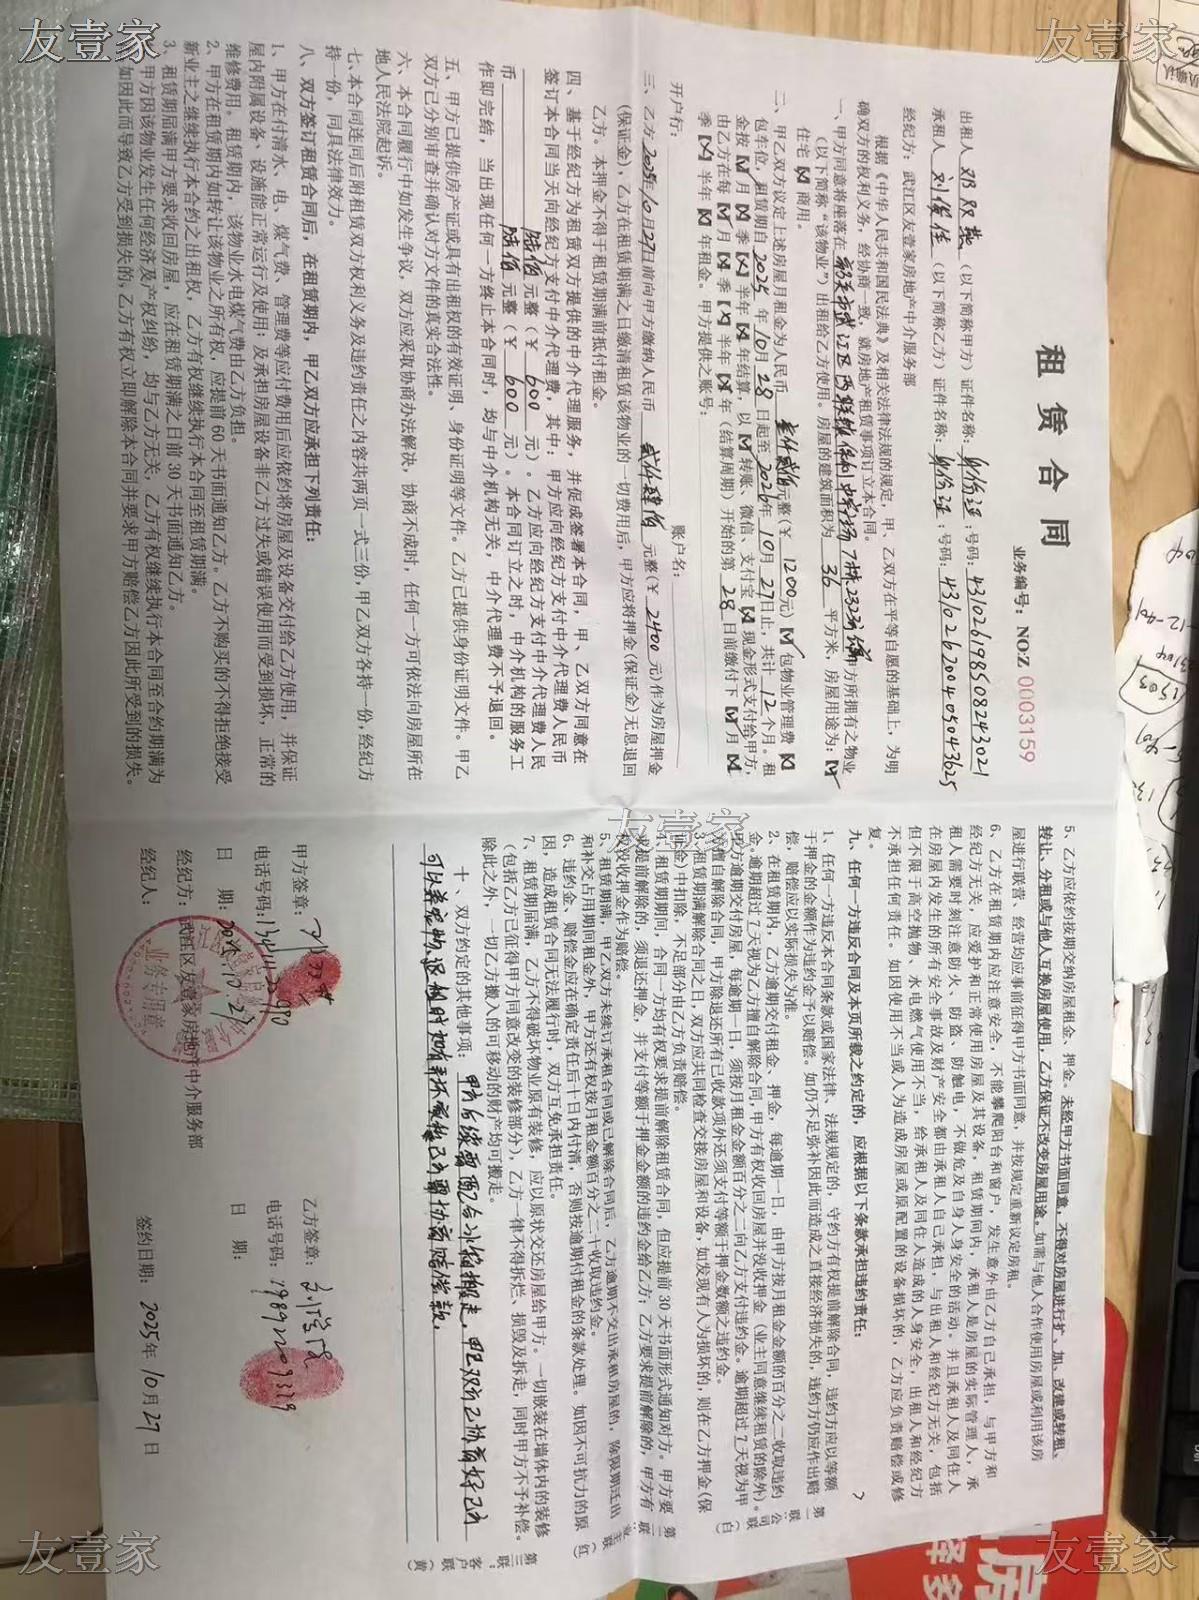 友壹家
友壹家
租赁合同
业务编号：NO:Z 0003159
出租人 邓双燕 （以下简称甲方）证件名称：身份证：号码：431026198508243021
承租人 刘俊佳 （以下简称乙方）证件名称：身份证：号码：431026200405043625
经纪方：武江区友壹家房地产中介服务部
根据《中华人民共和国民法典》及相关法律法规的规定，甲、乙双方在平等自愿的基础上，为明
确双方的权利义务，经协商一致，就房地产租赁事项订立本合同。
一、甲方同意将座落在 韶关市武江区西联镇 7栋2323房 甲方所拥有之物业
（以下简称“该物业”）出租给乙方使用。房屋的建筑面积为 36 平方米，房屋用途为：
住宅 商用。
二、甲乙双方议定上述房屋月租金为人民币 壹仟贰佰 元整（￥ 1200元） 包物业管理费
包车位，租赁期自 2025 年 10月 28 日起至 2026年 10月 27日止，共计 12 个月。租
金按 月 季 半年 年结算，以 转账、微信、支付宝 现金形式支付给甲方，
由乙方在每 月 季 半年 年（结算周期）开始的第 28 日前缴付下 月
季 半年 年租金。甲方提供之账号：
开户行： 账户名：
三、乙方 2025年10月27日前向甲方缴纳人民币 贰仟肆佰 元整（￥ 2400 元）作为房屋押金
（保证金），乙方在租赁期满之日缴清租赁该物业的一切费用后，甲方应将押金（保证金）无息退回
乙方。本押金不得于租赁期满前抵付租金。
四、基于经纪方为租赁双方提供的中介代理服务，并促成签署本合同，甲、乙双方同意在
签订本合同当天向经纪方支付中介代理费，其中：甲方应向经纪方支付中介代理费人民币
陆佰 元整（￥ 600 元）。乙方应向经纪方支付中介代理费人民
币 陆佰 元整（￥ 600 元）。本合同订立之时，中介机构的服务工
作即完结，当出现任何一方终止本合同时，均与中介机构无关，中介代理费不予退回。
五、甲方已提供房产证或具有出租权的有效证明、身份证明等文件。乙方已提供身份证明文件。甲乙
双方已分别审查并确认对方文件的真实合法性。
六、本合同履行中如发生争议，双方应采取协商办法解决，协商不成时，任何一方可依法向房屋所在
地人民法院起诉。
七、本合同连同后附租赁双方权利义务及违约责任之内容共两页一式三份，甲乙双方各持一份，经纪方
持一份，同具法律效力。
八、双方签订租赁合同后，在租赁期内，甲乙双方应承担下列责任：
1、甲方在付清水、电、煤气费、管理费等应付费用后应依约将房屋及设备交付给乙方使用，并保证
屋内附属设备、设施能正常运行及使用；及承担房屋设备非乙方过失或错误使用而受到损坏，正常的
维修费用。租赁期内，该物业水电煤气费由乙方负担。
2、甲方在租赁期内如转让该物业之所有权，应提前 60 天书面通知乙方。乙方不购买的不得拒绝接受
新业主之继续执行本合约之出租权，乙方有权继续执行本合同至租赁期满。
3、租赁期届满甲方要求收回房屋，应在租赁期满之日前 30 天书面通知乙方。
甲方因该物业发生任何经济及产权纠纷，均与乙方无关，乙方有权继续执行本合同至合约期满为
如因此而导致乙方受到损失的，乙方有权立即解除本合同并要求甲方赔偿乙方因此所受到的损失。
5、乙方应依约按期交纳房屋租金、押金。未经甲方书面同意，不得对房屋进行扩、加、改建或转租、
转让、分租或与他人互换房屋使用，乙方保证不改变房屋用途。如需与他人合作使用房屋或利用该房
屋进行联营、经营均应事前征得甲方书面同意，并按规定重新议定房租。
6、乙方在租赁期内应注意安全，不能攀爬阳台和窗户，发生意外由乙方自己承担，与甲方和
经纪方无关，应爱护和正常使用房屋及其设备，租赁期间内，承租人是房屋的实际管理人，承
租人需要时刻注意防火、防盗、防触电，不做危及自身人身安全的活动。并且承租人及同住人
在房屋内发生的所有安全事故及财产安全都由承租人自己承担，与出租人和经纪方无关，包括
但不限于高空抛物、水电燃气使用不当，给承租人及同住人造成的人身安全，出租人和经纪方
不承担任何责任。如因使用不当或人为造成房屋或原配置的设备损坏的，乙方应负责赔偿或修
复。
九、任何一方违反合同及本页所载之约定的，应根据以下条款承担违约责任：
1、任何一方违反本合同条款或国家法律、法规规定的，守约方有权提前解除合同，违约方应以等额
于押金的金额作为违约金予以赔偿。如仍不足弥补因此而造成之直接经济损失的，违约方仍应作出赔
偿，赔偿应以实际损失为准。
2、在租赁期内，乙方逾期交付租金、押金，每逾期一日，由甲方按月租金金额的百分之二收取违约
金。逾期超过 7天视为乙方擅自解除合同，甲方有权收回房屋并没收押金（业主同意继续租赁的除外）。
甲方逾期交付房屋，每逾期一日，须按月租金金额百分之二向乙方支付违约金。逾期超过 7天视为甲
方擅自解除合同，甲方除退还所有已收款项外还须支付等额于押金数额之违约金。
3、租赁期满解除合同之日，双方应共同检查交接房屋和设备，如发现有人为损坏的，则在乙方押金（保
证金）中扣除，不足部分由乙方负责赔偿。
4、租赁期期间，合同一方均有权要求提前解除租赁合同，但应提前 30 天书面形式通知对方。甲方要
求提前解除的，须退还押金，并支付等额于押金金额的违约金给乙方；乙方要求提前解除的，甲方有
权没收押金作为赔偿。
5、租赁期满，甲乙双方未续订承租合同或已解除合同后，乙方逾期不交出承租房屋的，除限期迁出
和补交占用期间租金外，甲方还有权按月租金额百分之二十收取违约金。
6、违约金、赔偿金应在确定责任后十日内付清，否则按逾期付租金的条款处理。如因不可抗力的原
因，造成租赁合同无法履行时，双方互免承担责任。
7、租赁期届满，乙方不得破坏物业原有装修，应以原状交还房屋给甲方。一切嵌装在墙体内的装修
（包括乙方已征得甲方同意改变的装修部分），乙方一律不得拆烂、损毁及拆走，同时甲方不予补偿。
除此之外，一切乙方搬入的可移动的财产均可搬走。
第一联：公司（白）
第二联：业主（红）
第三联：客户（黄
十、双方约定的其他事项： 甲方后续需配合冰箱搬走，甲乙双方已协商好乙方
可以养宠物退租时如有弄坏 协商赔偿款.
甲方签章：邓双燕
电话号码：13411122990
日 期：2025.10.27
经纪方：武江区友壹家房地产中介服务部
经纪人：
业务专用章
乙方签章：
电话号码：19892209339
日 期：
签约日期：2025年10月27日
友壹家
友壹家
友壹家